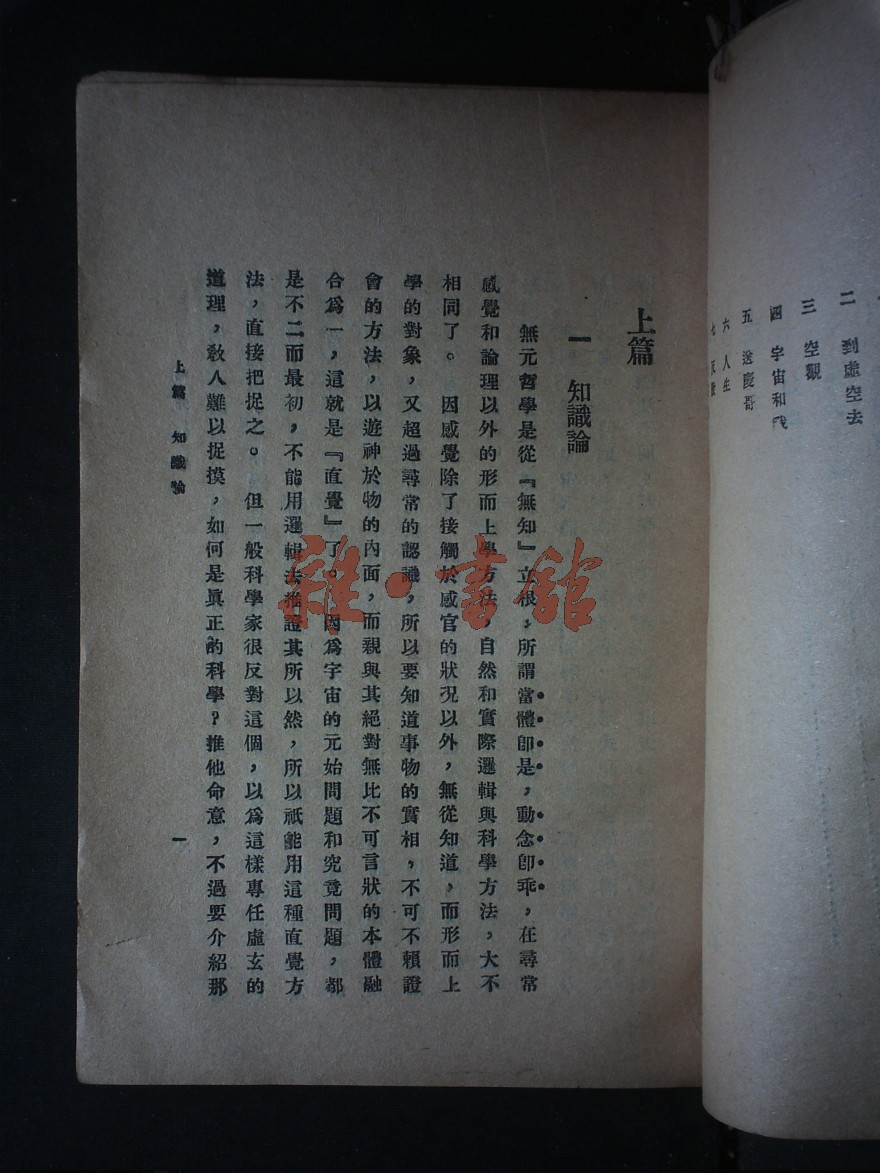 二 到虛空去
三 空觀
四 宇宙和我
五 送慶哥
六 人生
上篇
一 知識論
無元哲學是從『無知』立根，所謂當體卽是，動念卽乖，在尋常
感覺和論理以外的形而上學方法，自然和實際邏輯與科學方法，大不
相同了。因感覺除了接觸於感官的狀况以外，無從知道，而形而上
學的對象，又超過尋常的認識，所以要知道事物的實相，不可不賴證
會的方法，以遊神於物的內面，而親與其絕對無比不可言狀的本體融
合爲一，這就是『直覺』了。因爲宇宙的元始問題和究竟問題，都
是不二而最初，不能用邏輯法推證其所以然，所以祇能用這種直覺方
法，直接把捉之。但一般科學家很反對這個，以爲這樣專任虛玄的
道理，敎人難以捉摸，如何是眞正的科學？推他命意，不過要介紹那
上篇 知識論
一
雜·書館